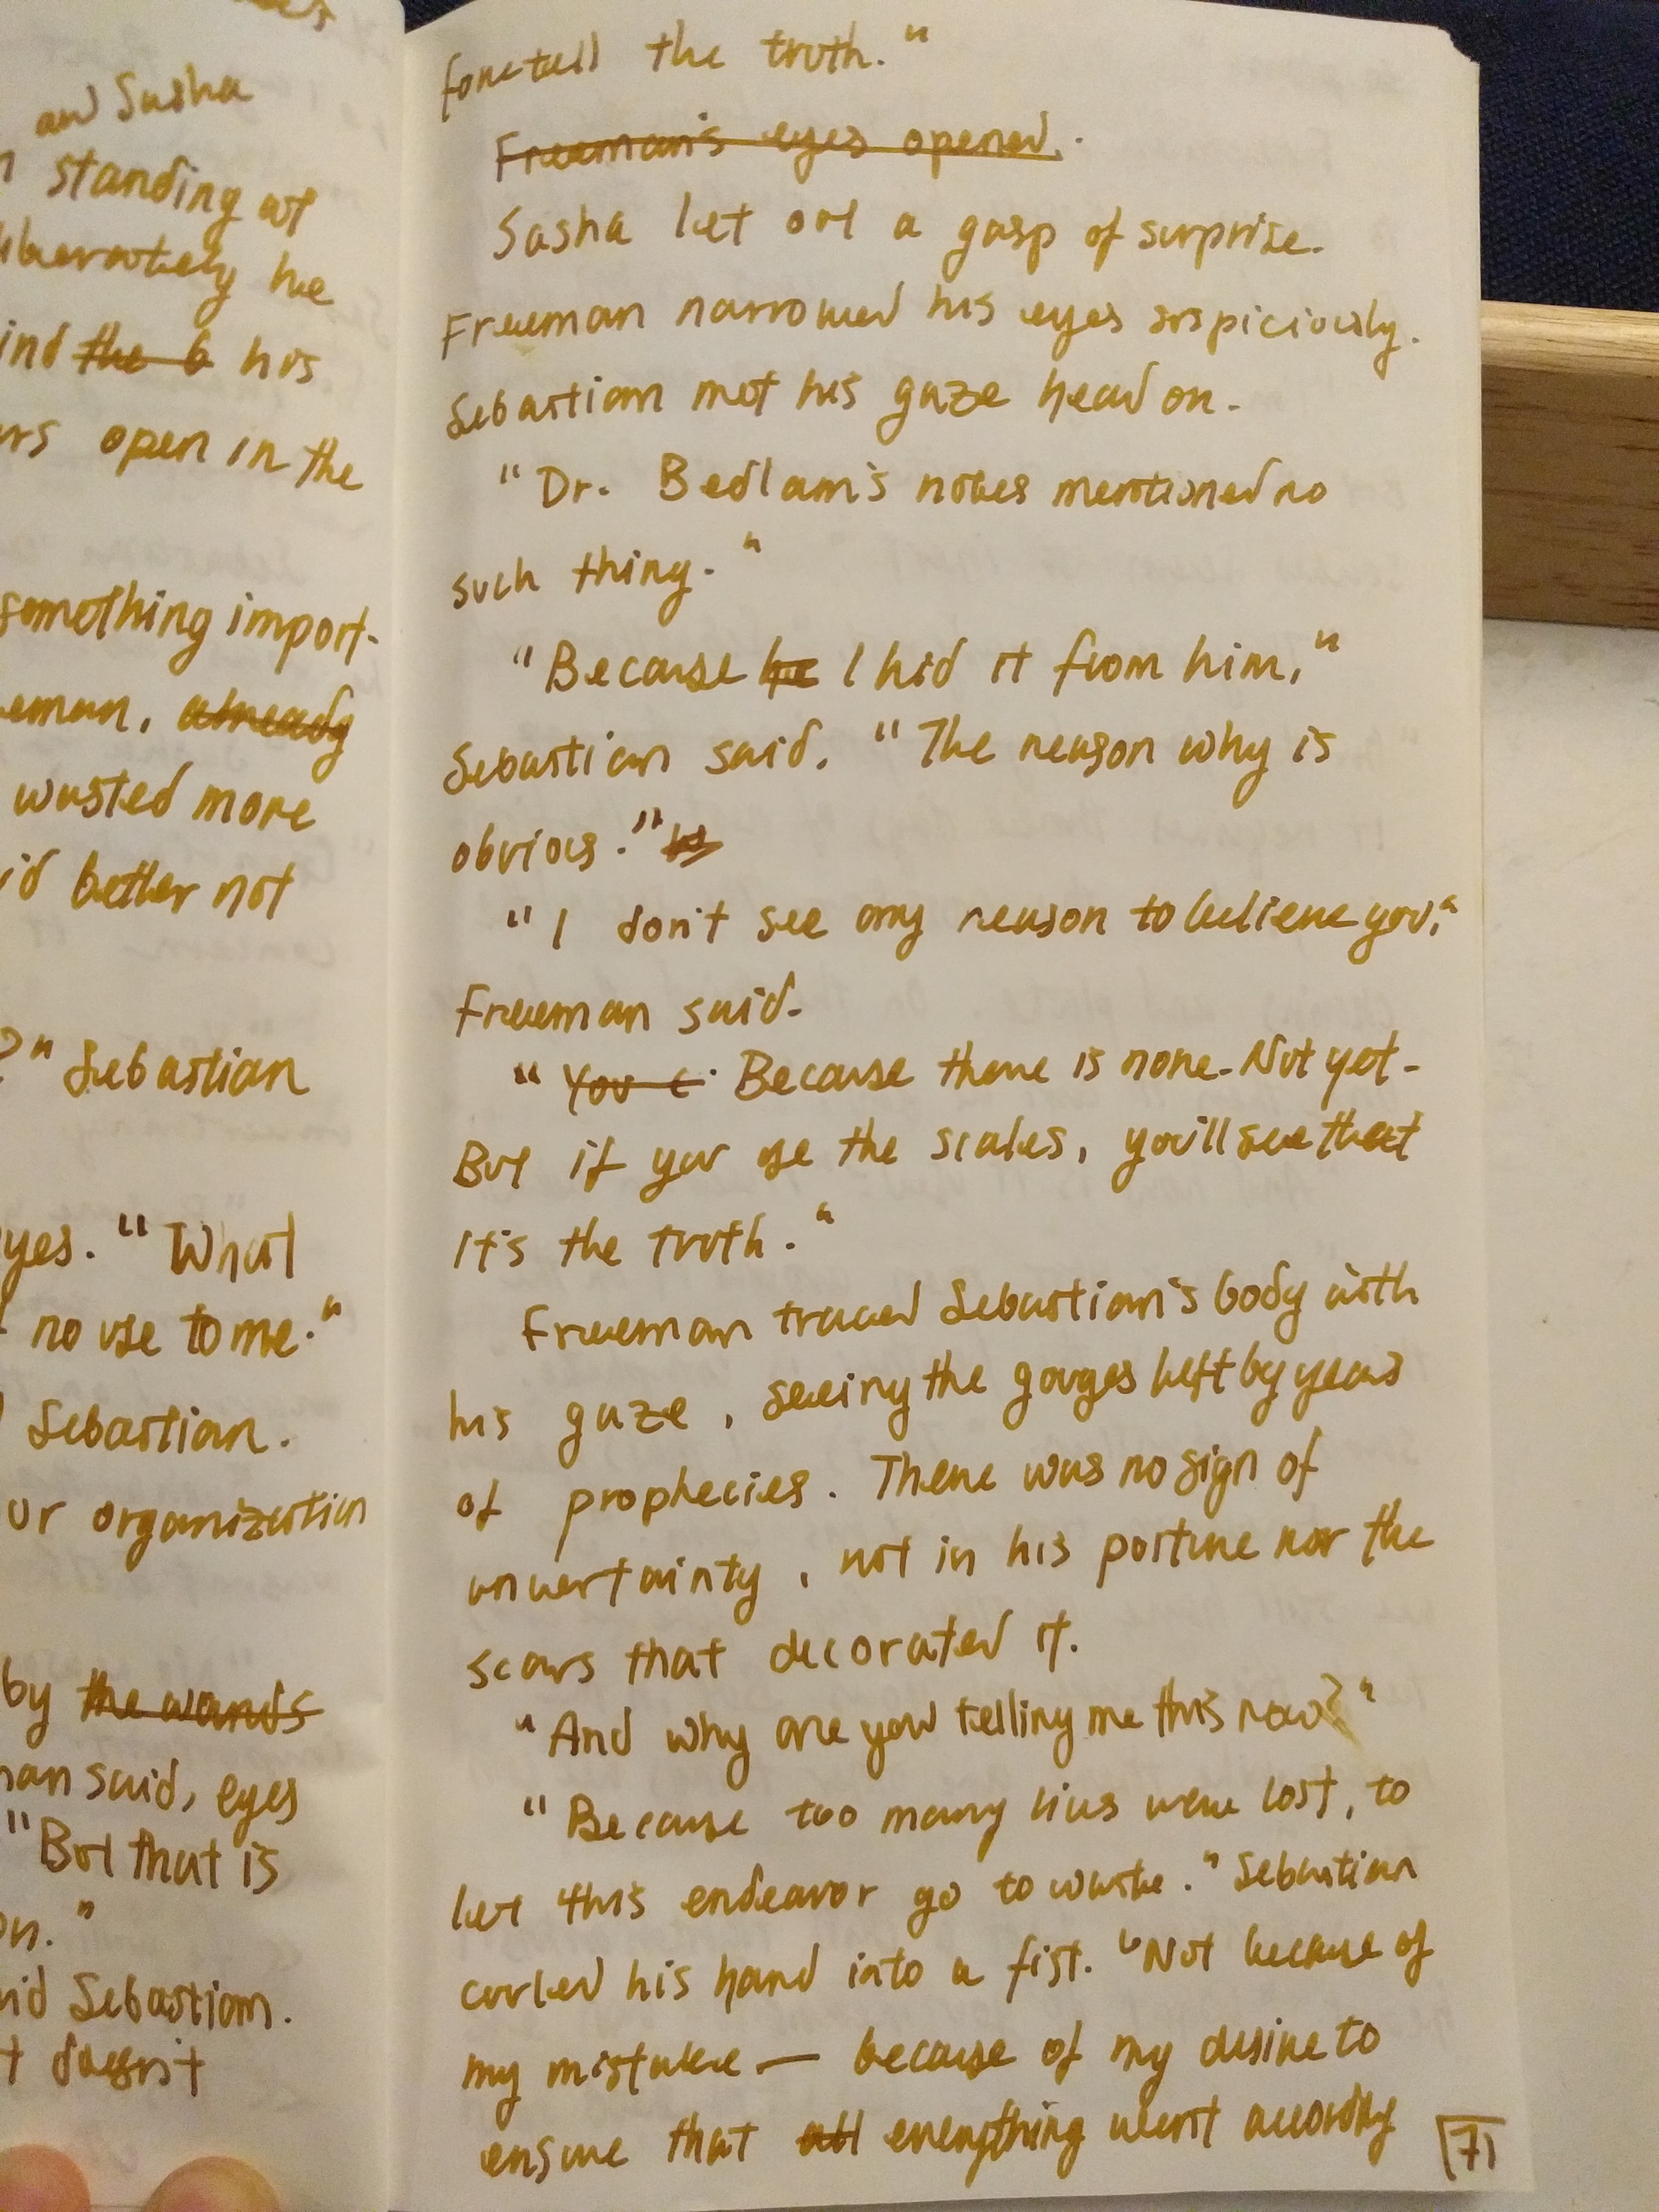 and Sasha
standing at
he
the b his
open in the
something import-
already
wasted more
better not
?" Sebastian
yes. "What
no use to me."
Sebastian.
organization
by the wands
said, eyes
"But that is
Sebastian.
doesn't
foretell the truth."
Freeman's eyes opened.
Sasha let out a gasp of surprise.
Freeman narrowed his eyes suspiciously.
Sebastian met his gaze head on.
"Dr. Bedlam's notes mentioned no
such thing."
"Because he I hid it from him,"
Sebastian said. "The reason why is
obvious."
"I don't see any reason to believe you,"
Freeman said.
"You c Because there is none. Not yet.
But if you use the scales, you'll see that
it's the truth."
Freeman traced Sebastian's body with
his gaze, seeing the gouges left by years
of prophecies. There was no sign of
uncertainty, not in his posture nor the
scars that decorated it.
"And why are you telling me this now?"
"Because too many lives were lost, to
let this endeavor go to waste." Sebastian
curled his hand into a fist. "Not because of
my mistake — because of my desire to
ensure that all everything went according
71